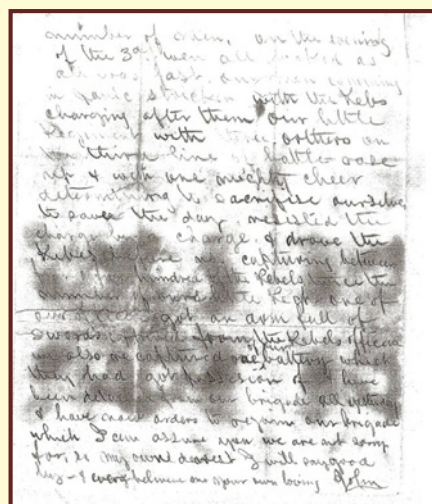 number of men, on the evening
of the 3d when all looked as
all was lost, our men coming
in panic stricken with the Rebs
charging after them our little
Regiment with three others on
the third line of battle rose
up & with one mighty cheer
determining to sacrifise ourselves
to save the day resisted the
charge by a charge & drove the
Rebels capturing between
hundred of the Rebels twice the
number of our little Regt one of
our got an arm full of
swords from the Rebels officers
we also captured our battery which
they had got possesion of I have
been detached from our brigade all yesterday
& have now orders to rejoin our brigade
which I can assure you we are not sorry
for, so my own dearest I will say good
bye & every believe me your own loving John